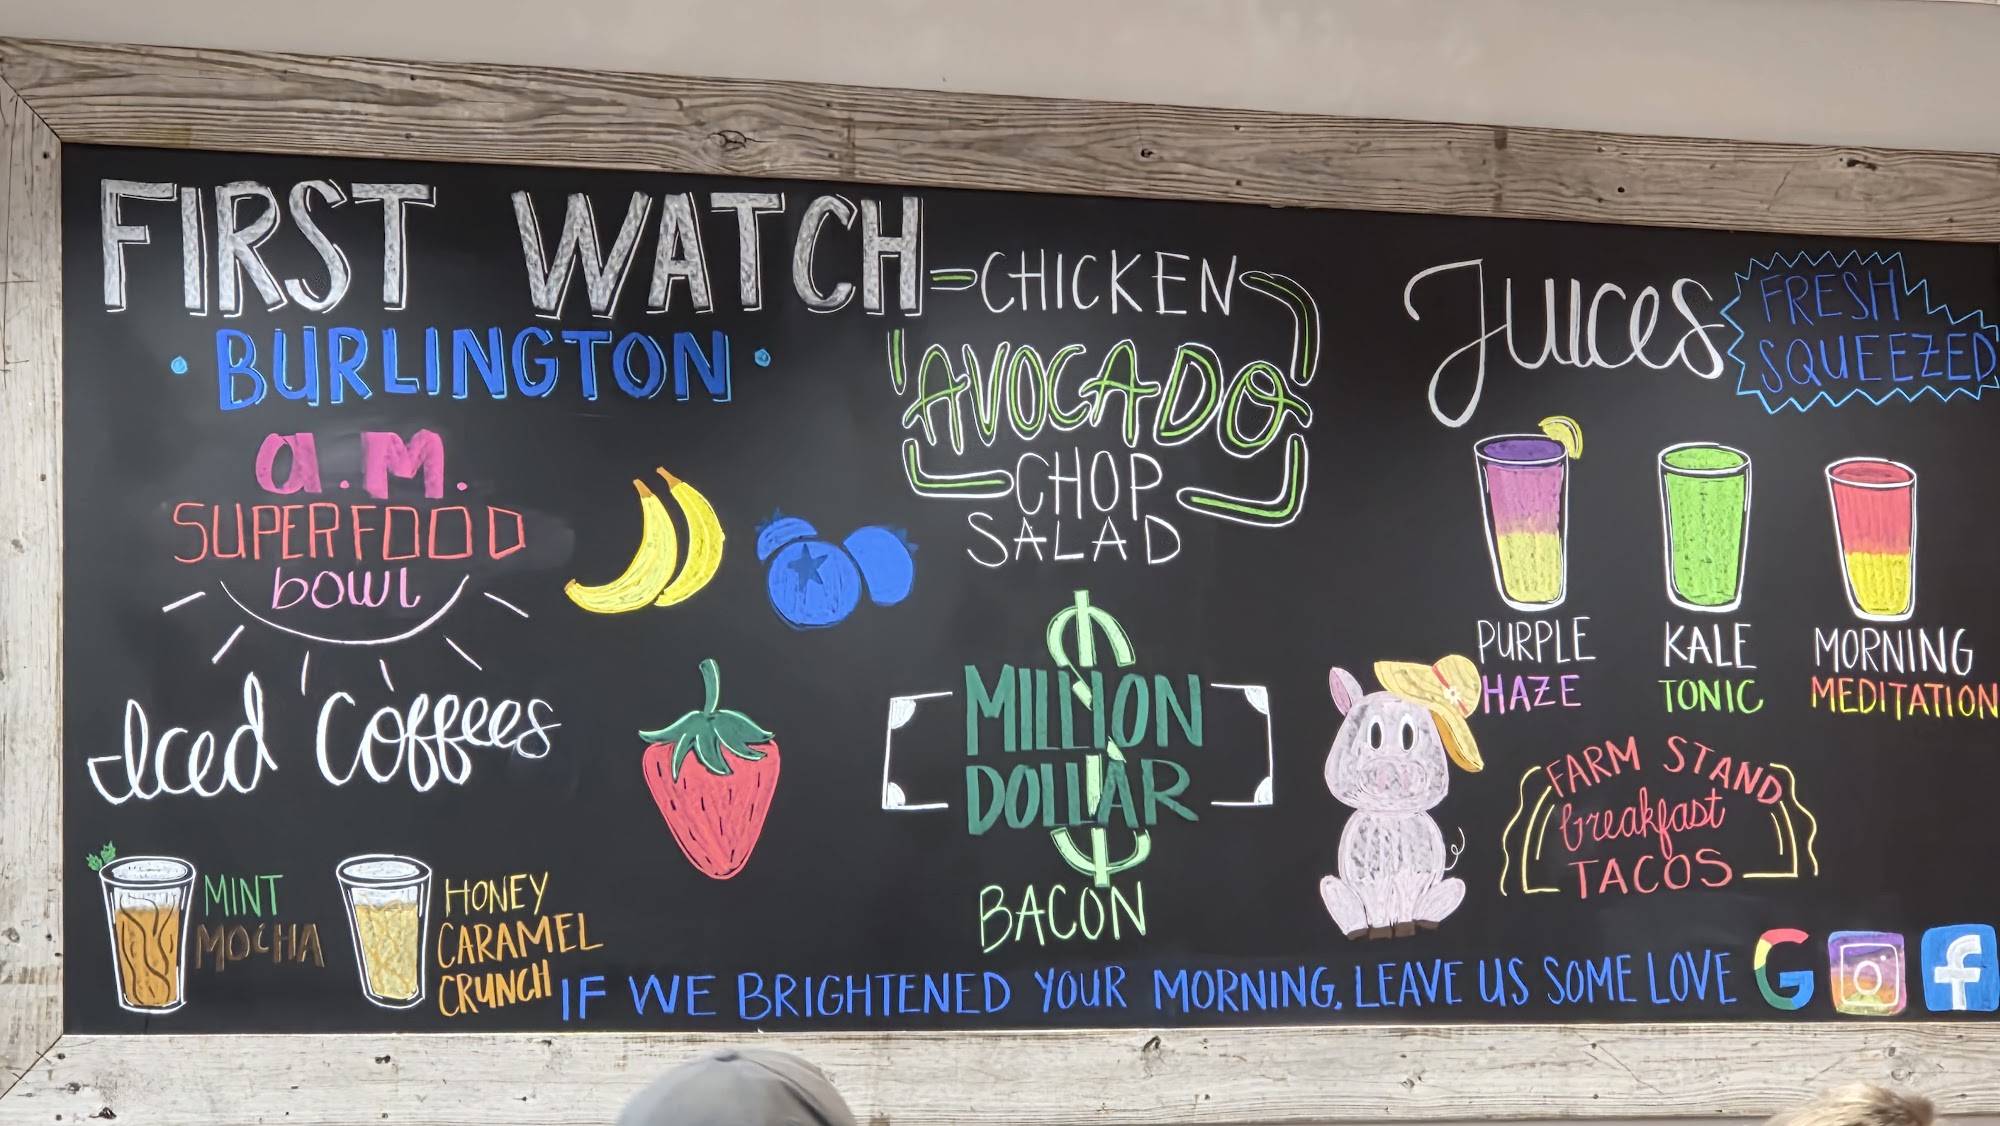 FIRST WATCH
• BURLINGTON •
a.m.
SUPERFOOD
bowl
Iced Coffees
MINT
MOCHA
HONEY
CARAMEL
CRUNCH
CHICKEN
AVOCADO
CHOP
SALAD
$
MILLION
DOLLAR
BACON
Juices
FRESH
SQUEEZED
PURPLE
HAZE
KALE
TONIC
MORNING
MEDITATION
FARM STAND
breakfast
TACOS
IF WE BRIGHTENED YOUR MORNING, LEAVE US SOME LOVE G f